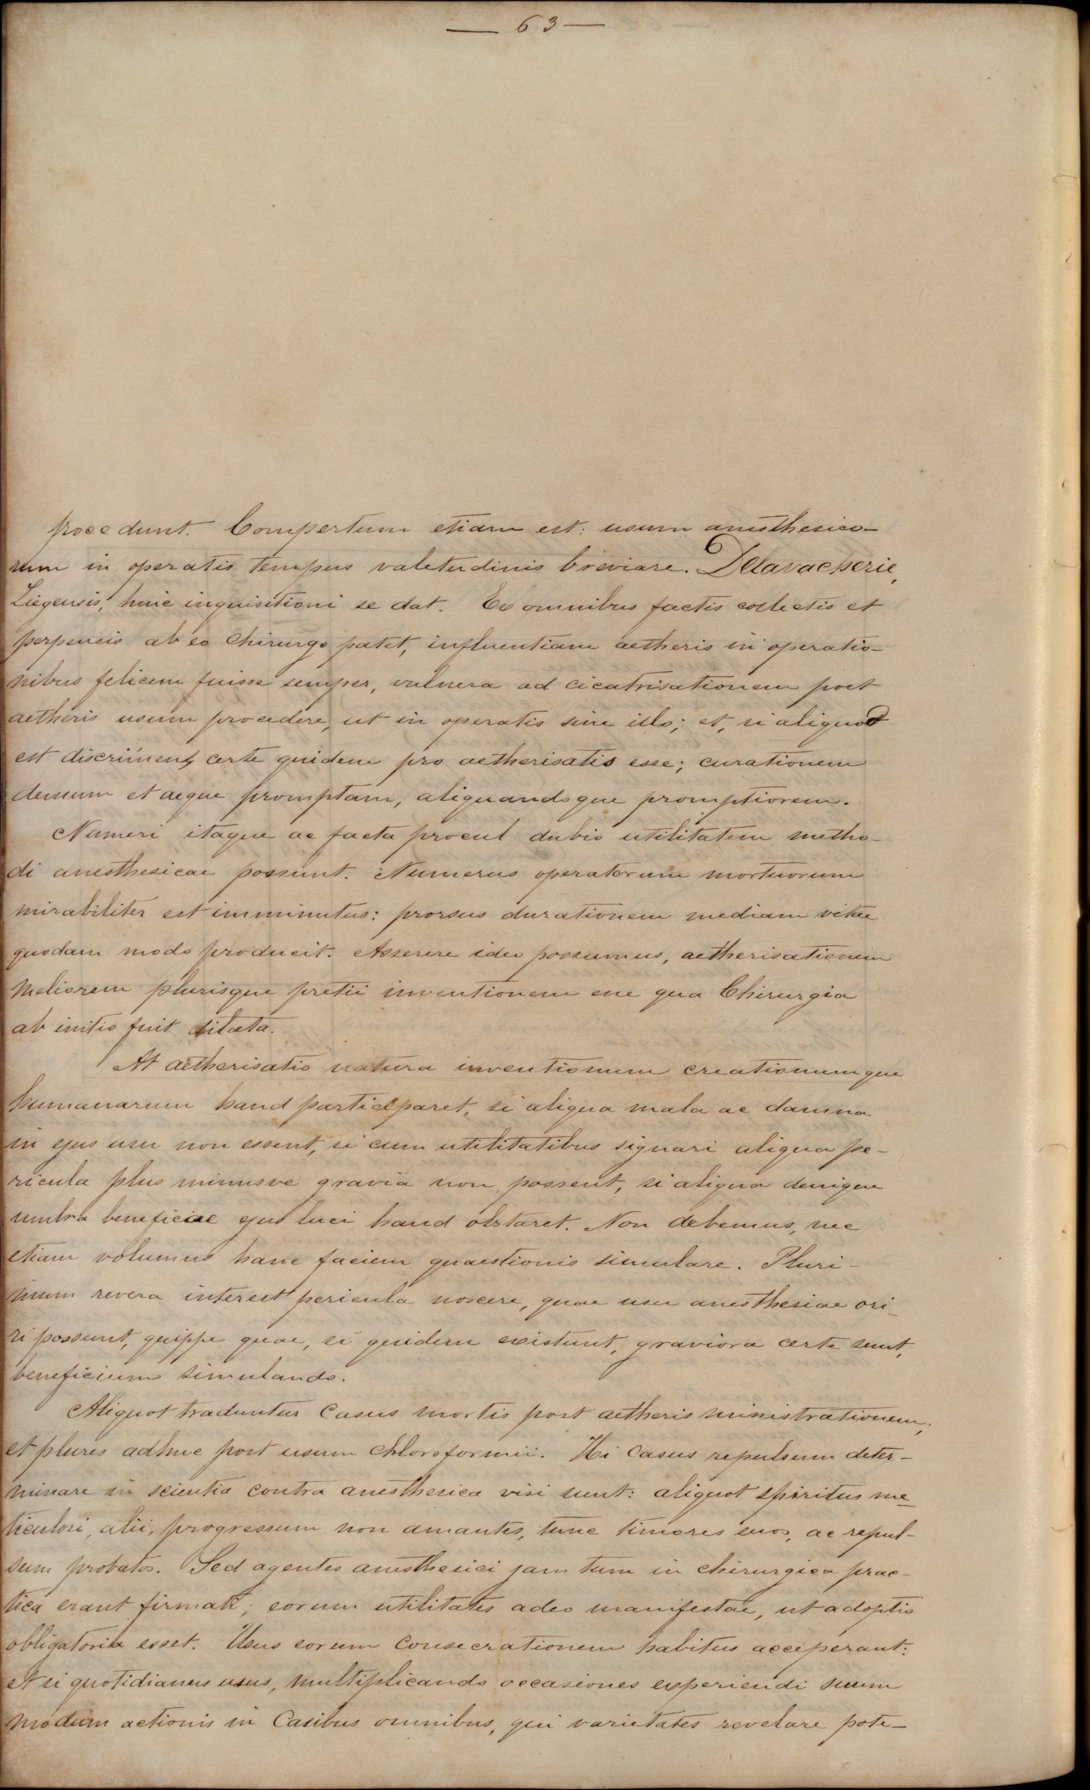 — 63 —
procedunt. Compertum etiam est: usum anesthesico-
rum in operatis tempus valetudinis breviare. Delavacherie,
Liegensis, huic inquisitioni se dat. Ex omnibus factis collectis et
perpensis ab eo Chirurgo patet, influentiam aetheris in operatio-
nibus felicem fuisse semper, vulnera ad cicatrisationem post
aetheris usum procedere, ut in operatis sine illo; et, si aliquod
est discrimen, certe quidem pro aetherisatis esse; curationem
demum et aeque promptam, aliquandoque promptiorem.
Numeri itaque ac facta procul dubio utilitatem metho-
di anesthesicae possunt. Numerus operatorum mortuorum
mirabiliter est imminutus: prorsus durationem mediam vitae
quodam modo producit. Asserere ideo possumus, aetherisationem
meliorem plurisque pretii inventionem esse qua Chirurgia
ab initio fuit ditata.
At aetherisatio natura inventionum creationumque
humanarum haud participaret, si aliqua mala ac damna
in ejus usu non essent, si cum utilitatibus signari aliqua pe-
ricula plus minusve gravia non possent, si aliqua denique
umbra beneficiae ejus luci haud obstaret. Non debemus, nec
etiam volumus hanc faciem quaestionis simulare. Pluri-
mum revera interest pericula noscere, quae usu anesthesiae ori-
ri possunt, quippe quae, si quidem existunt, graviora certe sunt,
beneficium simulando.
Aliquot traduntur Casus mortis post aetheris ministrationem,
et plures adhuc post usum chloroformii. Hi Casus repulsum deter-
minare in scientia contra anesthesica visi sunt: aliquot spiritus me-
ticulosi, alii, progressum non amantes, tunc timores suos, ac repul-
sum probatos. Sed agentes anesthesici jam tum in chirurgica prac-
tica erant firmati; eorum utilitates adeo manifestae, ut adoptio
obligatoria esset. Usus eorum Consecrationem habitus acceperant:
et si quotidianus usus, multiplicando occasiones experiendi suum
modum actionis in Casibus omnibus, qui varietates revelare pote-